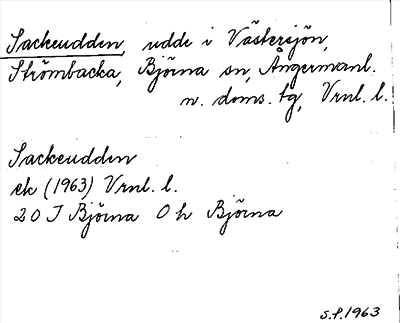 Sackeudden, udde i Västersjön,
Strömbacka, Björna sn, Ångermanl.
n. doms. tg, Vrnl. l.
Sackeudden
ek (1963) Vrnl. l.
20 I Björna O h Björna
S.P. 1963